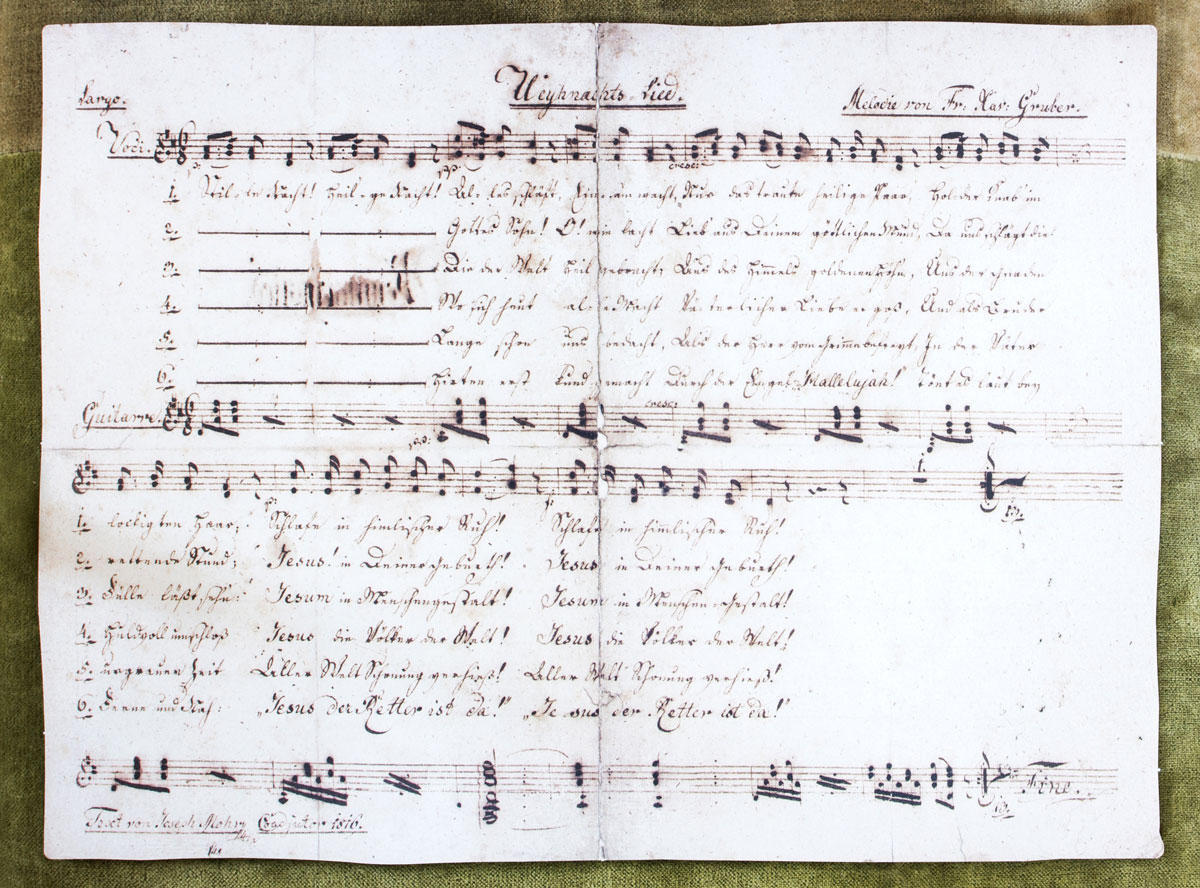 Weyhnachts-Lied.
Largo. Melodie von Fr: Xav: Gruber.
Voci.
p. pp. cresc:
1. Stil-le Nacht! Heil-ge Nacht! Al-les schläft, Einsam wacht, Nur das traute heilige Paar, Holder Knab' im
2. Gottes Sohn! O! wie lacht Lieb' aus Deinem göttlichen Mund, Da uns schlägt die
3. Die der Welt Heil gebracht; Aus des Himmels goldenen Höhn, Uns der Gnaden
4. Wo sich heut alle Macht Väterlicher Liebe ergoß, Und als Bruder
5. Lange schon uns bedacht, Als der Herr vom Grimme befreyt, In der Väter
6. Hirten erst kund gemacht Durch der Engel „Hallelujah!" Tönt es laut bey
Guitarre. cresc:
pp.
1. lockigten Haar; Schlafe in himlischer Ruh! Schlafe in himmlischer Ruh!
2. rettende Stund; Jesus! in Deiner Geburth! Jesus in Deiner Geburth!
3. Fülle läßt sehn: Jesum in Menschengestalt! Jesum in Menschen-Gestalt!
4. Huldvoll umschloß Jesus die Völker der Welt! Jesus die Völker der Welt!
5. urgrauer Zeit Aller Welt Schonung verhieß! Aller Welt Schonung verhieß!
6. Ferne und Nah: „Jesus der Retter ist da!" „Jesus der Retter ist da!"
Fine.
Text von Joseph Mohr Coadjutor 1816.